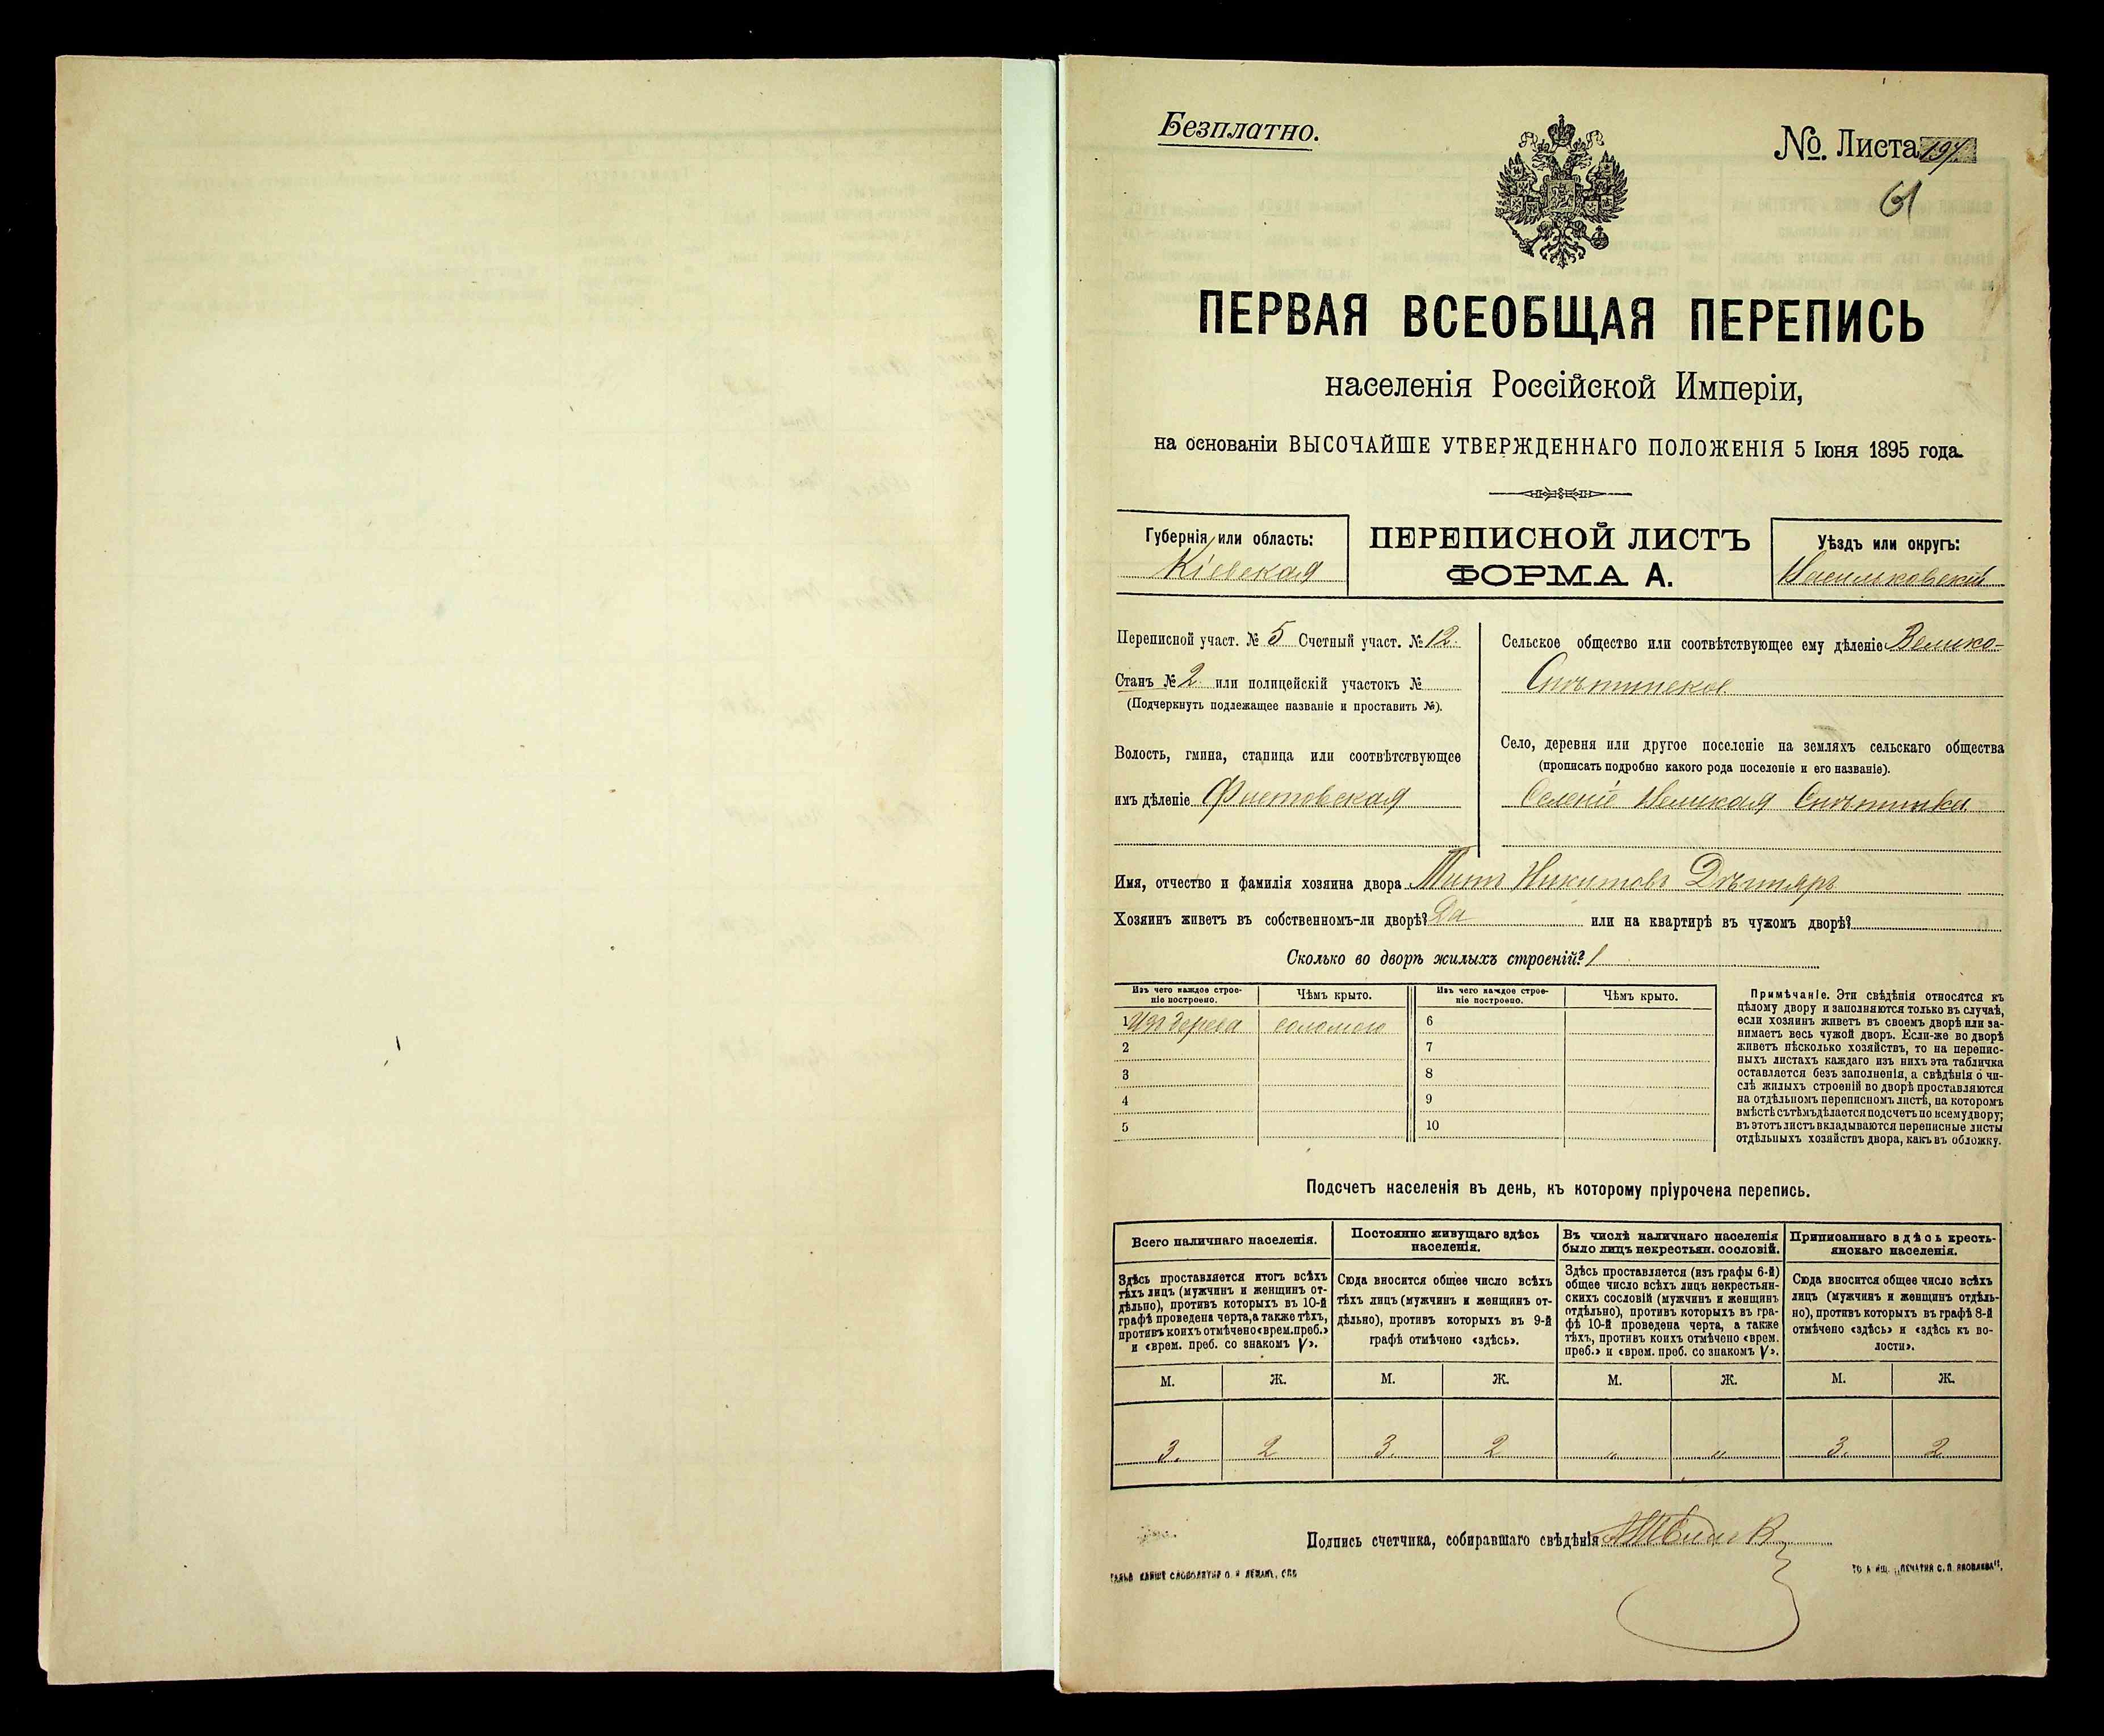 Безплатно.
№. Листа 197
61
ПЕРВАЯ ВСЕОБЩАЯ ПЕРЕПИСЬ
населенія Россійской Имперіи,
на основаніи ВЫСОЧАЙШЕ УТВЕРЖДЕННАГО ПОЛОЖЕНІЯ 5 Іюня 1895 года.
Губернія или область:
Кіевская
ПЕРЕПИСНОЙ ЛИСТЪ
ФОРМА А.
Уѣздъ или округъ:
Васильковскій
Переписной участ. № 5 Счетный участ. № 12.
Станъ № 2 или полицейскій участокъ №
(Подчеркнуть подлежащее названіе и проставить №).
Волость, гмина, станица или соотвѣтствующее
имъ дѣленіе Фастовская
Сельское общество или соотвѣтствующее ему дѣленіе Велико-
Снѣтинское
Село, деревня или другое поселеніе на земляхъ сельскаго общества
(прописать подробно какого рода поселеніе и его названіе).
Селеніе Великая Снѣтинка
Имя, отчество и фамилія хозяина двора Титъ Никитовъ Дѣхтяръ
Хозяинъ живетъ въ собственномъ-ли дворѣ? Да или на квартирѣ въ чужомъ дворѣ?
Сколько во дворѣ жилыхъ строеній? 1
Изъ чего каждое строе-
ніе построено.
Чѣмъ крыто.
Изъ чего каждое строе-
ніе построено.
Чѣмъ крыто.
1 Изъ дерева соломою 6
2 7
3 8
4 9
5 10
Примѣчаніе. Эти свѣдѣнія относятся къ
цѣлому двору и заполняются только въ случаѣ,
если хозяинъ живетъ въ своемъ дворѣ или за-
нимаетъ весь чужой дворъ. Если-же во дворѣ
живетъ нѣсколько хозяйствъ, то на перепис-
ныхъ листахъ каждаго изъ нихъ эта табличка
оставляется безъ заполненія, а свѣдѣнія о чи-
слѣ жилыхъ строеній во дворѣ проставляются
на отдѣльномъ переписномъ листѣ, на которомъ
вмѣстѣ съ тѣмъ дѣлается подсчетъ по всему двору;
въ этотъ листъ вкладываются переписные листы
отдѣльныхъ хозяйствъ двора, какъ въ обложку.
Подсчетъ населенія въ день, къ которому пріурочена перепись.
Всего наличнаго населенія.
Здѣсь проставляется итогъ всѣхъ
тѣхъ лицъ (мужчинъ и женщинъ от-
дѣльно), противъ которыхъ въ 10-й
графѣ проведена черта, а также тѣхъ,
противъ коихъ отмѣчено «врем. преб.»
и «врем. преб. со знакомъ V».
Постоянно живущаго здѣсь
населенія.
Сюда вносится общее число всѣхъ
тѣхъ лицъ (мужчинъ и женщинъ от-
дѣльно), противъ которыхъ въ 9-й
графѣ отмѣчено «здѣсь».
Въ числѣ наличнаго населенія
было лицъ некрестьян. сословій.
Здѣсь проставляется (изъ графы 6-й)
общее число всѣхъ лицъ некрестьян-
скихъ сословій (мужчинъ и женщинъ
отдѣльно), противъ которыхъ въ гра-
фѣ 10-й проведена черта, а также
тѣхъ, противъ коихъ отмѣчено «врем.
преб.» и «врем. преб. со знакомъ V».
Приписаннаго здѣсь кресть-
янскаго населенія.
Сюда вносится общее число всѣхъ
лицъ (мужчинъ и женщинъ отдѣль-
но), противъ которыхъ въ графѣ 8-й
отмѣчено «здѣсь» и «здѣсь къ во-
лости».
М. Ж. М. Ж. М. Ж. М. Ж.
3. 2 3. 2 „ „ 3. 2
Подпись счетчика, собиравшаго свѣдѣнія